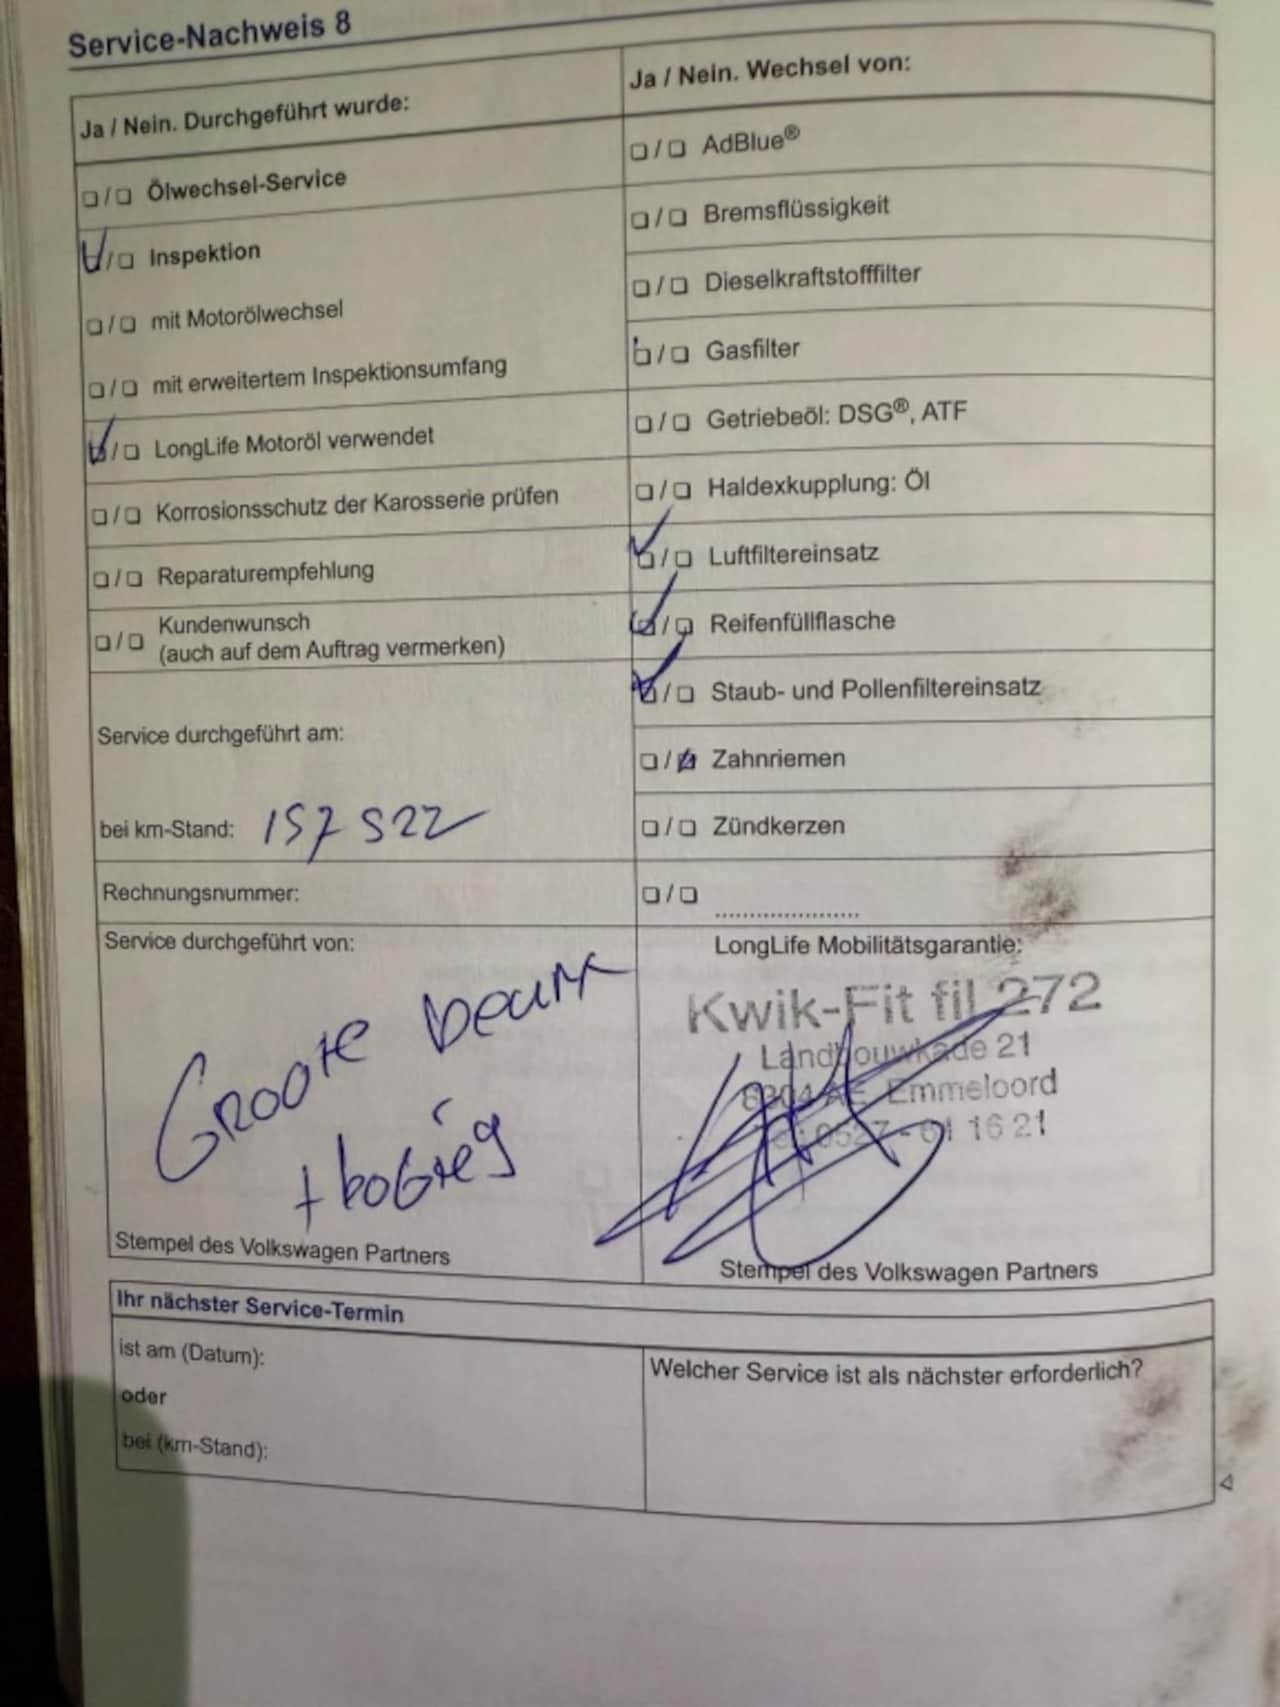 Service-Nachweis 8
Ja / Nein. Durchgeführt wurde:
❑/❑ Ölwechsel-Service
☑/❑ Inspektion
❑/❑ mit Motorölwechsel
❑/❑ mit erweitertem Inspektionsumfang
☑/❑ LongLife Motoröl verwendet
❑/❑ Korrosionsschutz der Karosserie prüfen
❑/❑ Reparaturempfehlung
❑/❑ Kundenwunsch
(auch auf dem Auftrag vermerken)
Service durchgeführt am:
bei km-Stand: 157 522
Rechnungsnummer:
Service durchgeführt von:
Groote beurt
Stempel des Volkswagen Partners
Ja / Nein. Wechsel von:
❑/❑ AdBlue®
❑/❑ Bremsflüssigkeit
❑/❑ Dieselkraftstofffilter
❑/❑ Gasfilter
❑/❑ Getriebeöl: DSG®, ATF
❑/❑ Haldexkupplung: Öl
☑/❑ Luftfiltereinsatz
☑/❑ Reifenfüllflasche
☑/❑ Staub- und Pollenfiltereinsatz
❑/☑ Zahnriemen
❑/❑ Zündkerzen
❑/❑ .....................
LongLife Mobilitätsgarantie:
Kwik-Fit fil 272
Landbouwkade 21
8304 AE Emmeloord
Tel: 0527 - 61 16 21
Stempel des Volkswagen Partners
Ihr nächster Service-Termin
ist am (Datum):
oder
bei (km-Stand):
Welcher Service ist als nächster erforderlich?